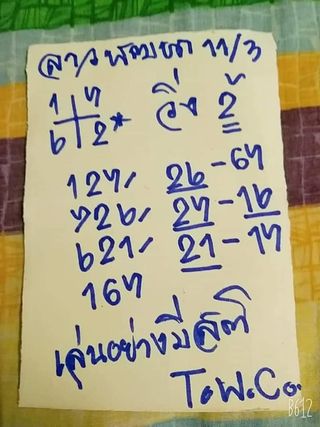 ลาวพัฒนา 11/3
1 7 วิ่ง 2
6 2*
127/ 26 - 67
726/ 27 - 16
621/ 21 - 17
167
เล่นอย่างมีสติ
T.W.Co.
B612